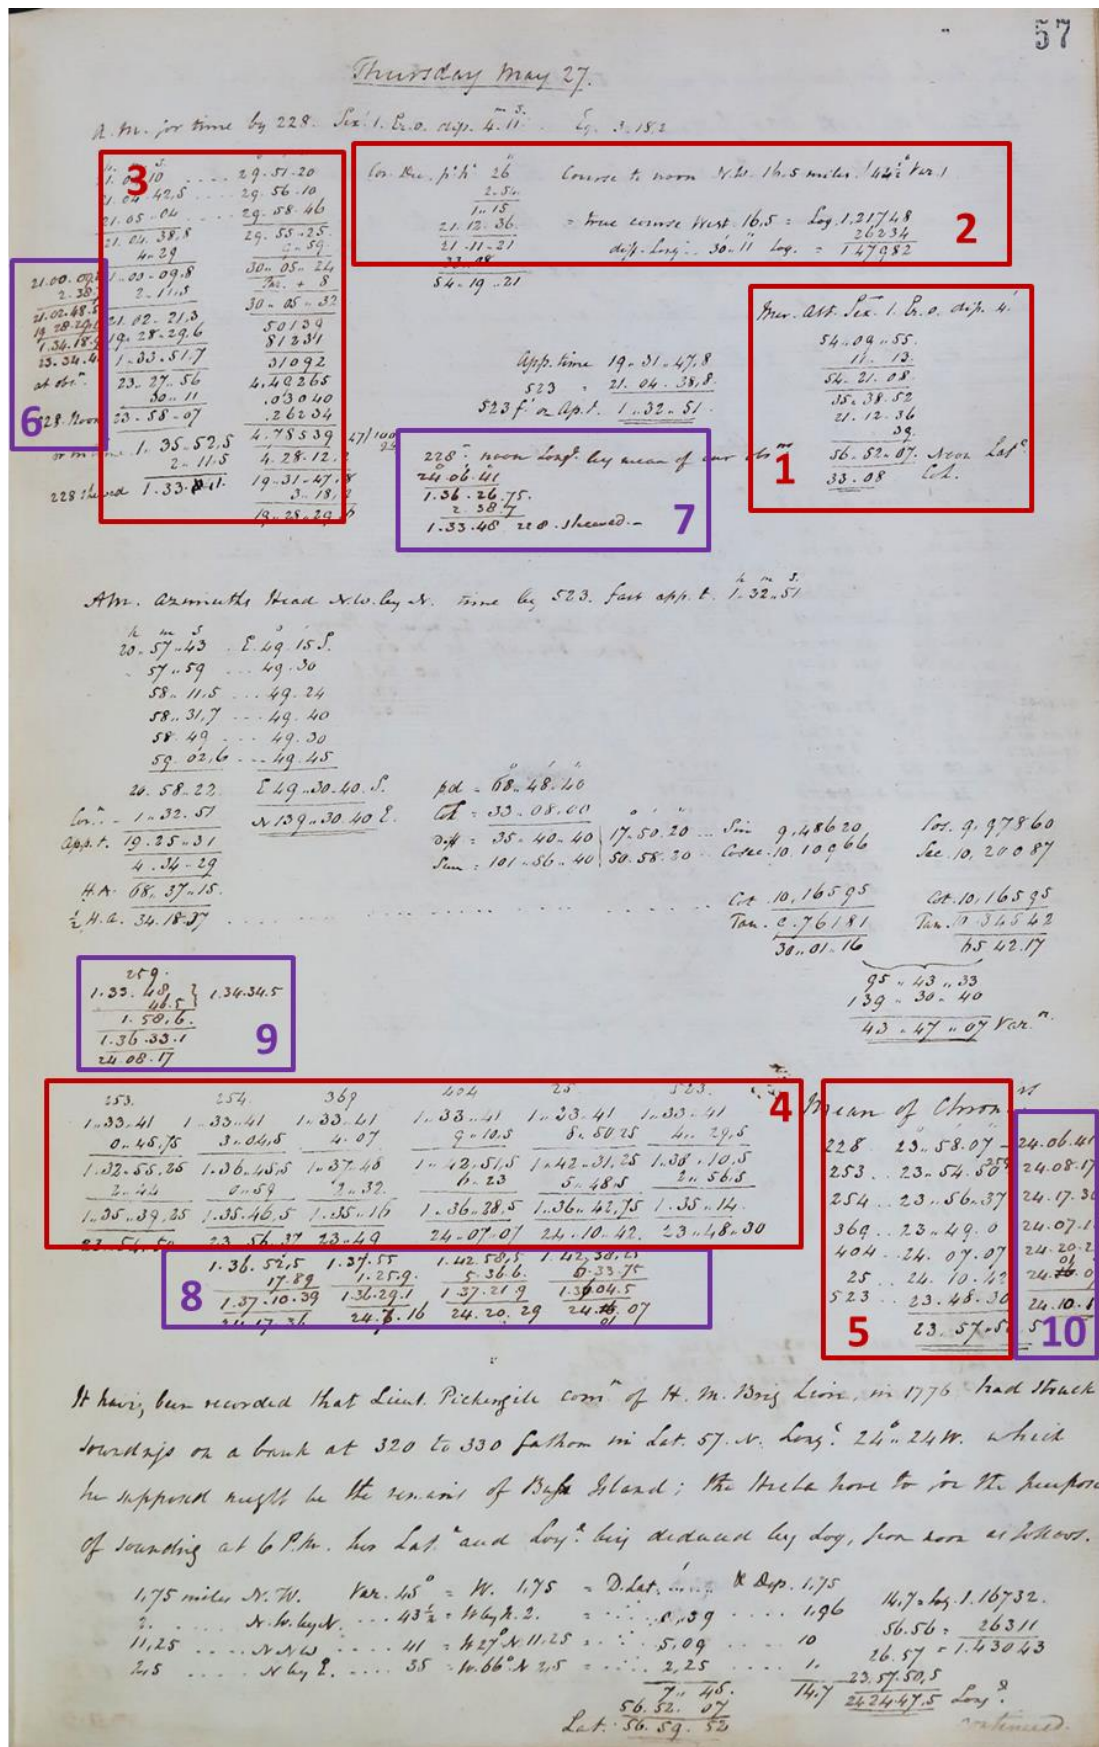 57
Thursday May 27.
A.M. for time by 228. Sex. 1. Er. 0. dip. 4.11. Eq. 3.18,2
h. m. s.
3
21.04.42,5 .... 29.56.10
21.05..04 .... 29..58.46
21.04.38,8 29..55..25
4..29
1..00..09.8 30..05..24
Par. + 8
2..11,5 30..05..32
21.02..21,3 50139
19..28..29.6 81231
1..33..51,7 31092
23..27..56 4.49265
30..11 .03040
23..58..07 .26234
1..35..52,5 4.78539
2..11,5 4.28.12,2
228 shewed 1.33.41. 19..31..47,8
3..18,2
19..28..29,6
Cor. Dec. 26
2.54
1..15
21.12.36
21..11..21
33.08
54..19..21
Course to noon N.W. 16.5 miles (44½° Var.)
= true course West. 16,5 = Log. 1.21748
26234
diff. Long. .. 30..11 Log. = 1.47982
2
6
21.00.09
2.38
21.02.48.5
1.34.18.9
at obs.n
228. Noon
Mer. Alt. Sex. 1. Er. 0. dip. 4'
54..09..55.
11..13.
54..21.08.
35..38.52
21.12.36
39.
56..52..07. Noon Lat.
33..08 Col.
1
App. time 19..31..47,8
523 = 21.04.38,8.
523 f. on Ap. t. 1..32..51.
228. noon Long. by mean of our obs.ns
24.06.41
1.36.26.75.
2.38.7
1.33.48 228 shewed.
7
AM. Azimuths Head N.W. by N. time by 523. fast app. t. 1..32..51
h m s
20..57..43 . E. 49.15 S.
57..59 ... 49.30
58..11.5 ... 49.24
58..31,7 ... 49.40
58.49 ... 49.30
59.02,6 ... 49.45
20..58..22. E 49..30.40. S.
Cor.n - 1..32..51 N 139..30.40 E.
App. t. 19.25..31
4..34..29
H.A. 68..37..15.
½ H.A. 34.18.37
pd = 68..48..40
Col = 33..08.00
Diff = 35..40..40 17..50.20 .. Sin 9.48620 Cos. 9.97860
Sum = 101..56..40 50.58.20 .. Cosec. 10.10966 Sec. 10.20087
Cot. 10,16595 Cot. 10,16595
Tan. 9.76181 Tan. 10.34542
30..01..16 65 42.17
95..43..33
139..30..40
43..47..07 Var.n
259.
1.33.48 } 1.34.34.5
46.5
1.58,6.
1.36.33.1
24.08.17
9
253. 254. 369 404 25 523.
1..33..41 1..33..41 1..33..41 1..33..41 1..33..41 1..33..41
0..45.75 3..04,5 4..07 9..10.5 8..50.25 4..29,5
1.32..55,25 1.36..45,5 1..37..48 1..42..51,5 1.42..31.25 1.38..10,5
2..44 0..59 2..32. 6..23 5..48.5 2..56,5
1..35..39,25 1.35.46,5 1..35..16 1..36..28,5 1..36..42,75 1..35..14.
23..54..50 23..56..37 23..49 24..07..07 24..10..42. 23..48..30
4
1.36.52,5 1.37.55 1.42.58,5 1.42.38,25
17.89 1.25.9. 5.36.6. 6.33.75
1.37.10.39 1.36.29.1 1.37.21.9 1.36.04.5
24.17.36 24.7.16 24.20.29 24.01.07
8
Mean of Chron.rs
228 23..58.07 24.06.41
253 .. 23..54.50 24.08.17
254 .. 23..56..37 24.17.36
369 .. 23..49.0
404 .. 24.07.07
25 .. 24.10.42
523 .. 23.48.30
23..57..50,5
5
10
It having been recorded that Lieut. Pickersgile com.n of H. M. Brig Lion, in 1776 had struck
soundings on a bank at 320 to 330 fathom in Lat. 57. N. Long. 24°..24 W. which
he supposed might be the remains of Buss Island; the Hecla hove to for the purpose
of sounding at 6 P.M. her Lat. and Long. being deduced by Log, from noon as follows.
1,75 miles N.W. Var. 45° = W. 1,75 = D. Lat. ..... & Dep. 1,75
2. .... N.W. by N. ... 43½ = W by N. 2. = .... 0,39 .... 1,96
11,25 .... N N W .... 41 = W 27° N 11,25 = .... 5,09 .... 10
2,5 .... N by E. .... 35 = W. 66° N 2,5 = .... 2,25 .... 1.
7..45. 14,7
56.52.07
Lat. 56.59.52
14,7 = Log. 1.16732.
56.56 = 26311
26.57 = 1.43043
23.57.50,5
24 24 47.5 Long.
continued.